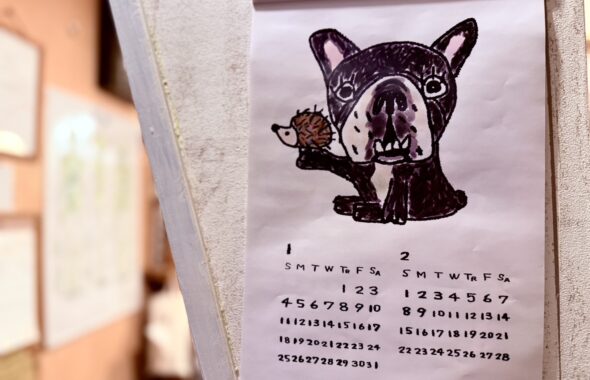 1
S M T W TR F SA
1 2 3
4 5 6 7 8 9 10
11 12 13 14 15 16 17
18 19 20 21 22 23 24
25 26 27 28 29 30 31
2
S M T W TR F SA
1 2 3 4 5 6 7
8 9 10 11 12 13 14
15 16 17 18 19 20 21
22 23 24 25 26 27 28